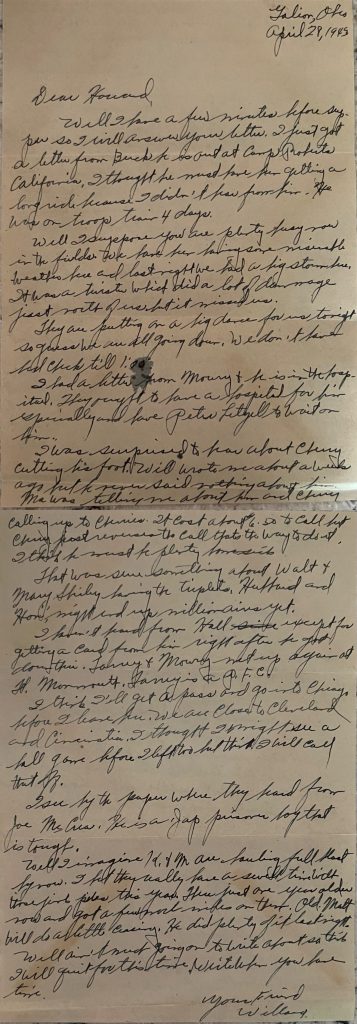 Galion, Ohio
April 29, 1945
Dear Howard,
Well I have a few minutes before sup-
per so I will answer your letter. I just got
a letter from Buck he is out at Camp Roberts
California, I thought he must have been getting a
long ride because I didn't hear from him. He
was on troop train 4 days.
Well I suppose you are plenty busy now
in the fields. We have been having some miserable
weather here and last night we had a big storm here,
It was a twister which did a lot of damage
just north of us but it missed us.
They are putting on a big dance for us tonight
so guess we are all going down. We don't have
bed check till
I had a letter from Moury & he is in the hosp-
ital. They ought to have a hospital for him
specially and have Petra to wait on
him.
I was surprised to hear about Cherry
cutting his foot. Will wrote me about a week
ago but he never said nothing about him.
Ma was telling me about him and Cherry
calling up to Cheries. It cost about to call but
Cherry just reverses the call thats the way to do it.
I think he must be plenty homesick
That was sure something about Walt &
Mary Shirley having the triplets. Hubbard and
Hon, might end up millionaires yet.
I haven't heard from Hall except for
getting a card from him right after he got
down thir. & Moury met up again at
Ft. Monmouth. is a P.F.C.
I think I'll get a pass and go into Chicago
before I leave here. We are close to Cleveland
and Cincinatti. I thought I might see a
ball game before I left too but think I will call
that off.
I see by the paper where they heard from
Joe McCrea. He is a Jap prisoner boy that
is tough.
Well I imagine K. & M. are hauling full blast
by now. I bet they really have a swell time with
those this year. They just are one year older
now and got a few more miles on them. Old Matt
will do a little cussing. He did plenty of it last night.
Well ain't much going on to write about so think
I will quit for this time. Write when you have
time.
Your friend
Willard